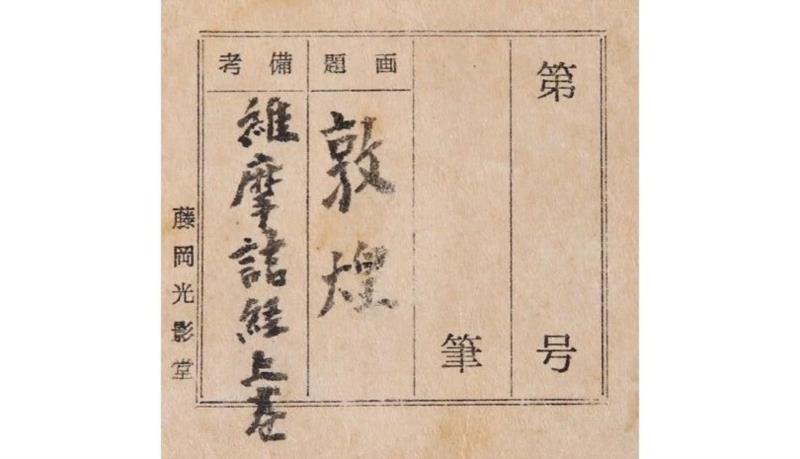 第　号
筆
画題
敦煌
備考
維摩詰経上巻
藤岡光影堂